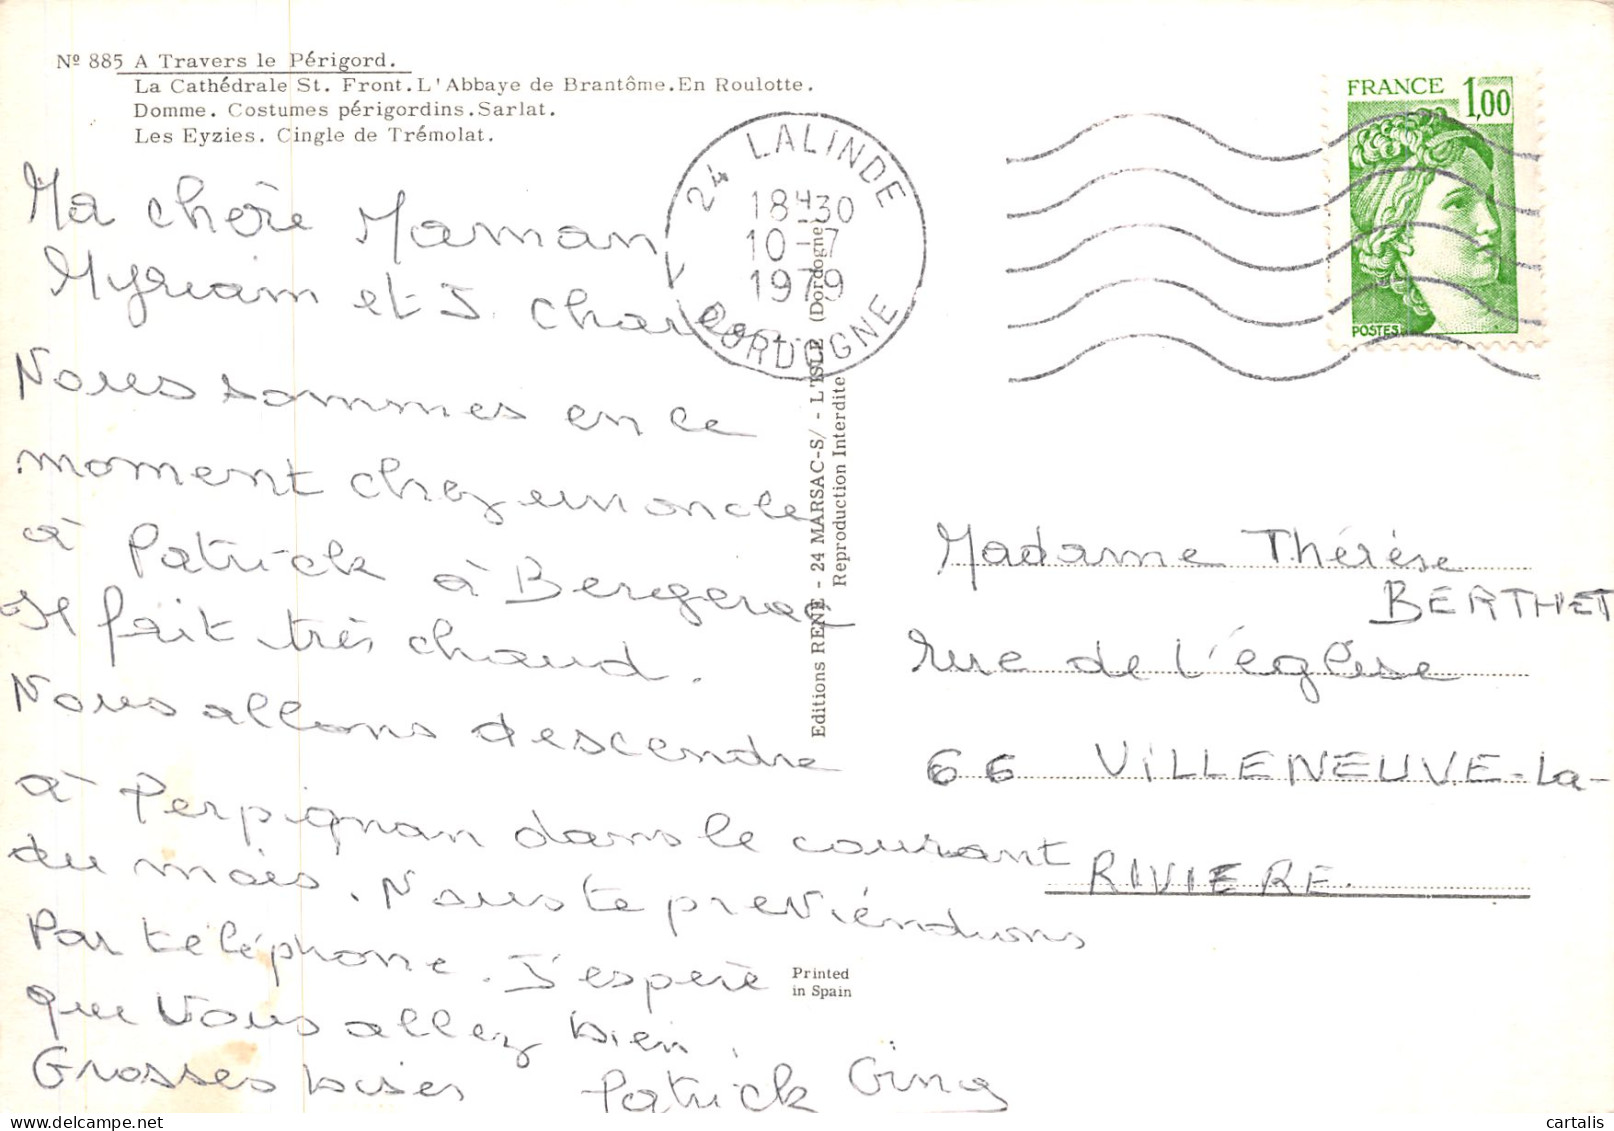 Nº 885 A Travers le Périgord.
La Cathédrale St. Front. L'Abbaye de Brantôme. En Roulotte.
Domme. Costumes périgordins. Sarlat.
Les Eyzies. Cingle de Trémolat.
24 LALINDE
18H30
10-7
1979
DORDOGNE
FRANCE 1,00
POSTES
Ma chère Maman
Myriam et J.
Nous sommes en ce
moment chez un oncle
à Patrick à Bergerac
Il fait très chaud.
Nous allons descendre
à Perpignan dans le courant
du mois. Nous te previéndrons
Par téléphone. J'espère
que Vous allez bien.
Grosses bises Patrick Gina
Editions RENE - 24 MARSAC-S/ - L'ISLE (Dordogne)
Reproduction Interdite
Printed
in Spain
Madame Thérèse
BERTHET
rue de l'église
66 VILLENEUVE-la-
RIVIERE.
cartalis